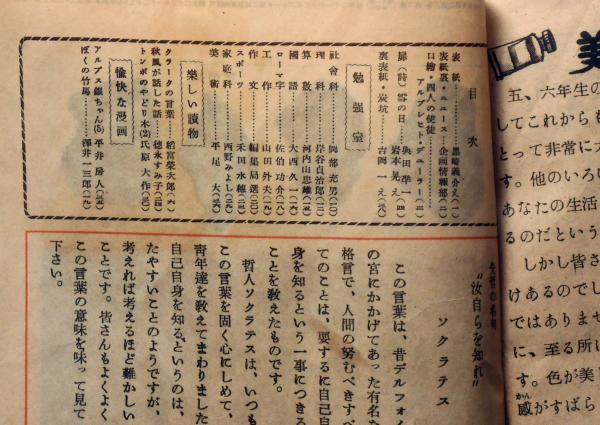 目次
表紙……黒崎義介え(一)
表紙裏・ニュース…企画情報部(二)
口繪・四人の使徒……
アルブレヒト・デューラー(三)
扉(詩)雪の日……與田凖一
岩本晃一え(四)
裏表紙・炭坑……吉岡一え
勉強室
社會科……岡部充男(10)
理科……岸谷貞治郎
算數……河内山忠雄
國語……大西久一
ローマ字……佐伯功介
工作……山田外夫
作文……編集局選
スポーツ……禾田水穂
家庭科……西野みよし
美術……平尾大
樂しい讀物
クラークの言葉…稻富榮次郎(六)
秋風が話した話…徳永すみ子(四)
トンボのやどり木(2)氏原大作
愉快な漫画
アルプス銀ちゃん(5)平井房人
ぼくの竹馬……澤井一三郎
"汝自らを知れ"
ソクラテス
この言葉は、昔デルフォイ
の宮にかかげてあった有名な
格言で、人間の努むべきすべ
てのことは、要するに自己自
身を知るという一事につきる
ことを敎えたものです。
哲人ソクラテスは、いつも
この言葉を固く心にしめて、
靑年達を敎えてまわりました
自己自身を知るというのは、
たやすいことのようですが、
考えれば考えるほど難かしい
ことです。皆さんもよくよく
この言葉の意味を味って見て
下さい。
美
五、六年生の
してこれからも
とって非常に
す。他のいろ
あなたの生活
るのだという
しかし皆さ
けあるのでし
ではありませ
に、至る所に
す。色が美し
感がすばら
かん